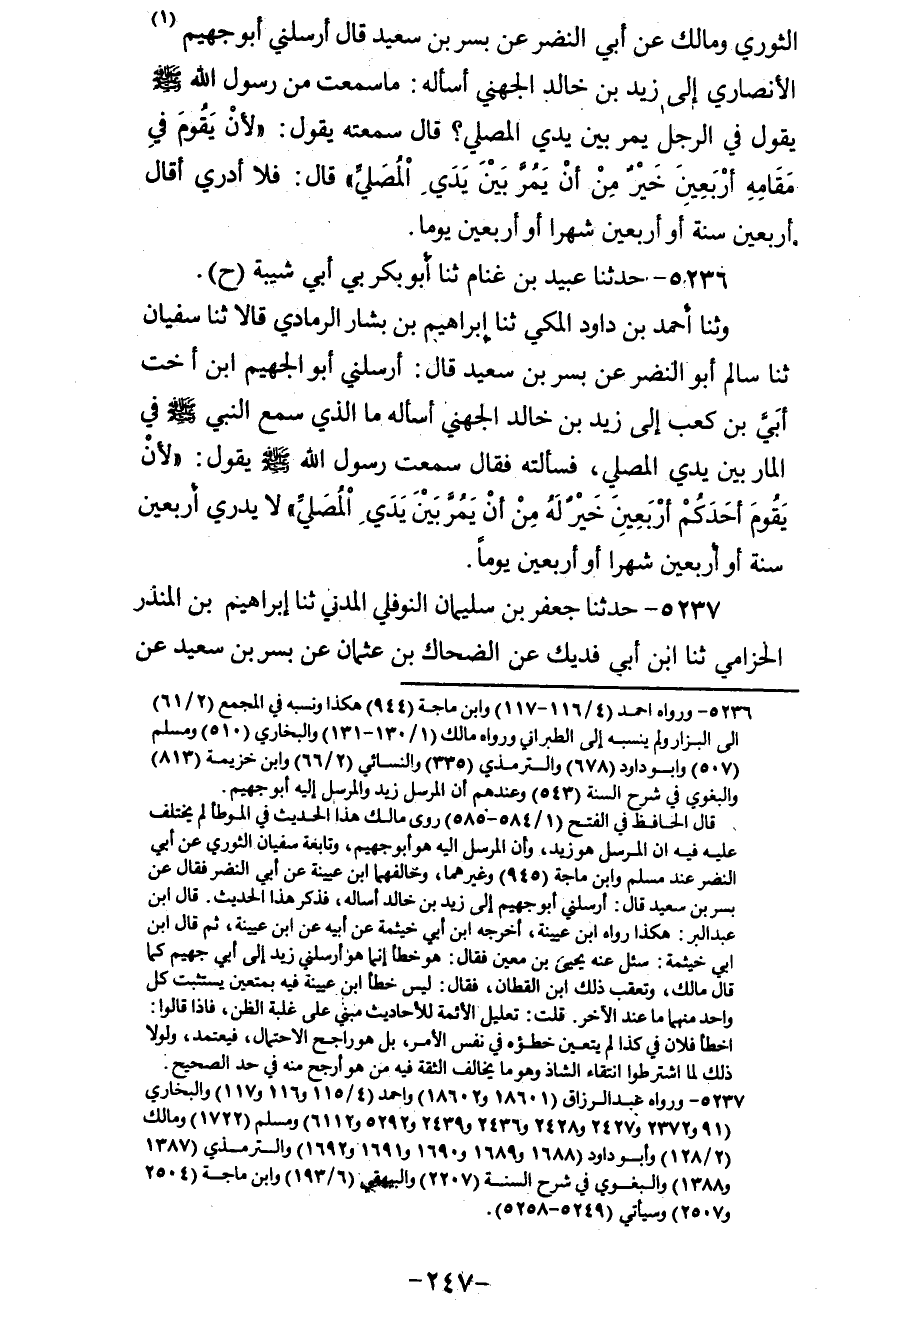 الثوري ومالك عن أبي النضر عن بسر بن سعيد قال أرسلني أبوجهيم (١)
الأنصاري إلى زيد بن خالد الجهني أسأله : ماسمعت من رسول الله ﷺ
يقول في الرجل يمر بين يدي المصلي؟ قال سمعته يقول : «لأنْ يَقُومَ فِي
مَقَامِهِ أرْبَعِينَ خَيْرٌ مِنْ أنْ يَمُرَّ بَيْنَ يَدَيِ الْمُصَلِّي» قال : فلا أدري أقال
أربعين سنة أو أربعين شهرا أو أربعين يوما.
٥٢٣٦- حدثنا عبيد بن غنام ثنا أبوبكر بي أبي شيبة (ح).
وثنا أحمد بن داود المكي ثنا إبراهيم بن بشار الرمادي قالا ثنا سفيان
ثنا سالم أبو النضر عن بسر بن سعيد قال : أرسلني أبو الجهيم ابن أخت
أبَيَّ بن كعب إلى زيد بن خالد الجهني أسأله ما الذي سمع النبي ﷺ في
المار بين يدي المصلي ، فسألته فقال سمعت رسول الله ﷺ يقول : «لأنْ
يَقُومَ أحَدَكُمْ أرْبَعِينَ خَيْرٌ لَهُ مِنْ أنْ يَمُرَّ بَيْنَ يَدَيِ الْمُصَلِّي» لا يدري أربعين
سنة أو أربعين شهرا أو أربعين يوماً.
٥٢٣٧- حدثنا جعفر بن سليمان النوفلي المدني ثنا إبراهيم بن المنذر
الحزامي ثنا ابن أبي فديك عن الضحاك بن عثمان عن بسر بن سعيد عن
٥٢٣٦- ورواه احمد (١١٦/٤-١١٧) وابن ماجة (٩٤٤) هكذا ونسبه في المجمع (٦١/٢)
الى البزار ولم ينسبه إلى الطبراني ورواه مالك (١٣٠/١-١٣١) والبخاري (٥١٠) ومسلم
(٥٠٧) وابو داود (٦٧٨) والترمذي (٣٣٥) والنسائي (٦٦/٢) وابن خزيمة (٨١٣)
والبغوي في شرح السنة (٥٤٣) وعندهم أن المرسل زيد والمرسل إليه أبوجهيم.
قال الحافظ في الفتح (٥٨٤/١-٥٨٥) روى مالك هذا الحديث في الموطأ لم يختلف
عليه فيه ان المرسل هو زيد، وأن المرسل اليه هو أبوجهيم، وتابعة سفيان الثوري عن أبي
النضر عند مسلم وابن ماجة (٩٤٥) وغيرهما، وخالفهما ابن عيينة عن أبي النضر فقال عن
بسر بن سعيد قال : أرسلني أبو جهيم إلى زيد بن خالد أساله، فذكر هذا الحديث. قال ابن
عبدالبر : هكذا رواه ابن عيينة، أخرجه ابن أبي خيثمة عن أبيه عن ابن عيينة، ثم قال ابن
ابي خيثمة : سئل عنه يحيى بن معين فقال : هو خطأ إنما هو أرسلني زيد إلى أبي جهيم كما
قال مالك، وتعقب ذلك ابن القطان، فقال : ليس خطأ ابن عيينة فيه بمتعين يستثبت كل
واحد منهما ما عند الآخر. قلت : تعليل الأئمة للأحاديث مبني على غلبة الظن، فاذا قالوا :
اخطأ فلان في كذا لم يتعين خطؤه في نفس الأمر، بل هو راجح الاحتمال، فيعتمد، ولولا
ذلك لما اشترطوا انتقاء الشاذ وهو ما يخالف الثقة فيه من هو أرجح منه في حد الصحيح.
٥٢٣٧- ورواه عبدالرزاق (١٨٦٠١ و١٨٦٠٢) واحمد (١١٥/٤ و١١٦ و١١٧) والبخاري
(٩١ و٢٣٧٢ و٢٤٢٧ و٢٤٢٨ و٢٤٣٦ و٢٤٣٩ و٥٢٩٢ و٦١١٢) ومسلم (١٧٢٢) ومالك
(١٢٨/٢) وأبو داود (١٦٨٨ و١٦٨٩ و١٦٩٠ و١٦٩١ و١٦٩٢) والترمذي (١٣٨٧
و١٣٨٨) والبغوي في شرح السنة (٢٢٠٧) والبيهقي (١٩٣/٦) وابن ماجة (٢٥٠٤
و٢٥٠٧) وسيأتي (٥٢٤٩-٥٢٥٨).
-٢٤٧-